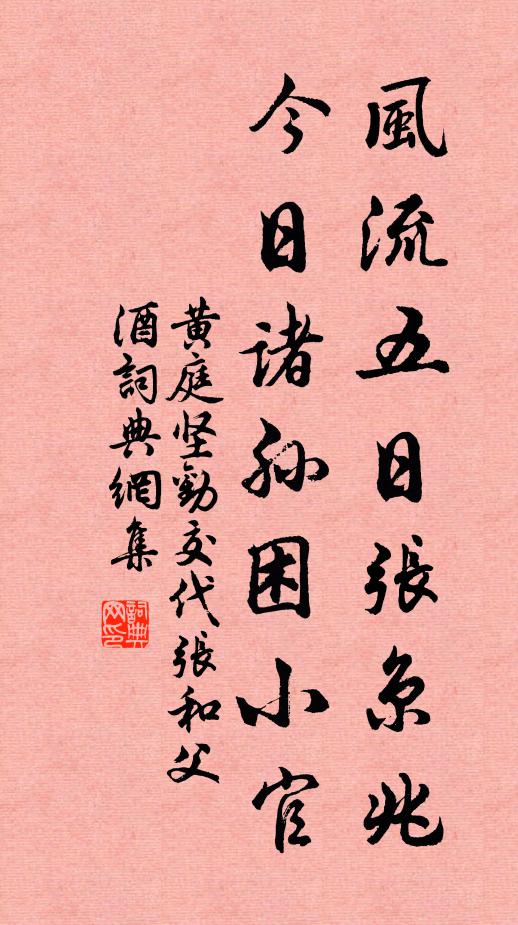 風流五日張京兆
今日諸孫困小官
黄庭坚勸交代張和父
酒詞典網集
詞典
网印